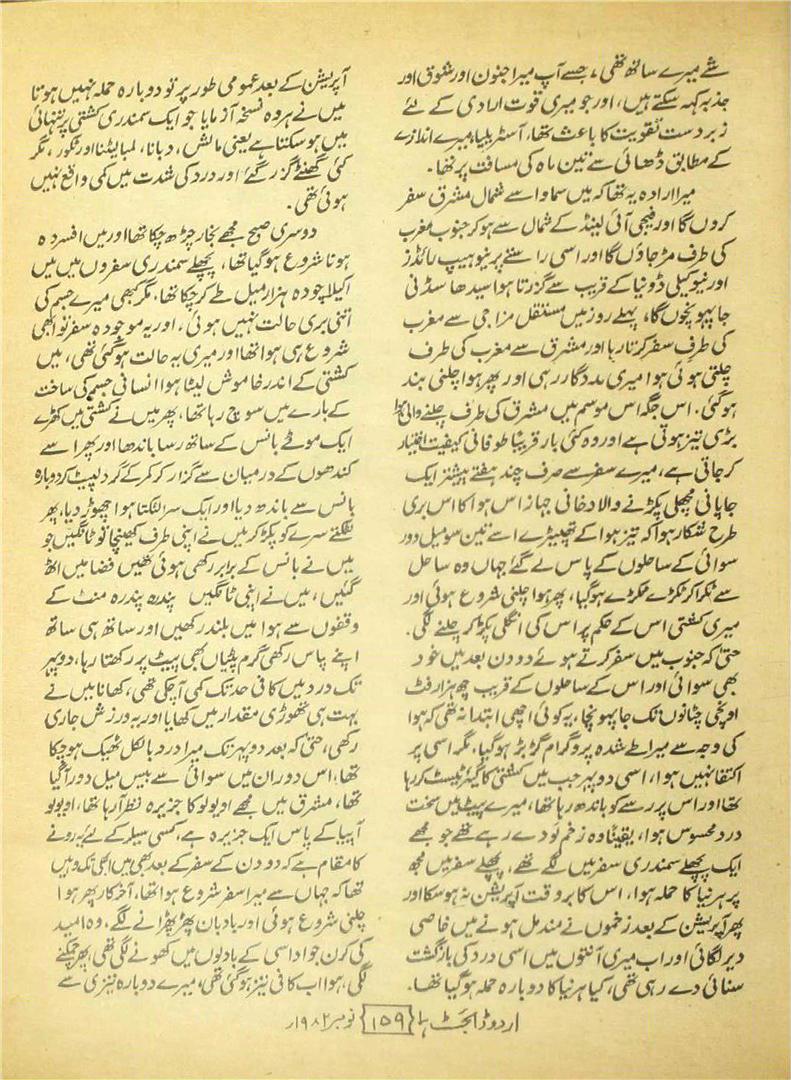 شے میرے ساتھ تھی، جسے آپ میرا جنون اور شوق اور
جذبہ کہہ سکتے ہیں، اور جو میری قوت ارادی کے لئے
زبردست تقویت کا باعث تھا، آسٹریلیا، میرے اندازے
کے مطابق ڈھائی سے تین ماہ کی مسافت پر تھا۔
میرا ارادہ یہ تھا کہ میں سماوا سے شمال مشرق سفر
کروں گا اور فیجی آئی لینڈ کے شمال سے ہو کر جنوب مغرب
کی طرف مڑ جاؤں گا اور اسی راستے پر نیو ہیپ رائڈز
اور نیو کیلی ڈونیا کے قریب سے گزرتا ہوا سیدھا سڈنی
جا پہونچوں گا، پہلے روز میں مستقل مزاجی سے مغرب
کی طرف سفر کرتا رہا اور مشرق سے مغرب کی طرف
چلتی ہوئی ہوا میری مددگار رہی اور پھر ہوا چلنی بند
ہوگئی۔ اس جگہ اس موسم میں مشرق کی طرف چلنے والی ہوا
بڑی تیز ہوتی ہے اور وہ کئی بار قریباً طوفانی کیفیت اختیار
کر جاتی ہے، میرے سفر سے صرف چند ہفتے پیشتر ایک
جاپانی مچھلی پکڑنے والا دخانی جہاز اس ہوا کا اس بری
طرح شکار ہوا کہ تیز ہوا کے تھپیڑے اسے تین سو میل دور
سوائی کے ساحلوں کے پاس لے گئے جہاں وہ ساحل
سے ٹکرا کر ٹکڑے ٹکڑے ہوگیا، پھر ہوا چلنی شروع ہوئی اور
میری کشتی اس کے حکم پر اس کی انگلی پکڑ کر چلنے لگی۔
حتیٰ کہ جنوب میں سفر کرتے ہوئے دو دن بعد میں خود
بھی سوائی اور اس کے ساحلوں کے قریب چھ ہزار فٹ
اونچی چٹانوں تک جا پہونچا، یہ کوئی اچھی ابتدا نہ تھی کہ ہوا
کی وجہ سے میرا طے شدہ پروگرام گڑبڑ ہوگیا، مگر اسی پر
اکتفا نہیں ہوا، اسی دوپہر جب میں کشتی کا گیئر ٹیسٹ کر رہا
تھا اور اس پر رسے کو باندھ رہا تھا، میرے پیٹ میں سخت
درد محسوس ہوا، یقیناً وہ زخم لَو دے رہے تھے جو مجھے
ایک پچھلے سمندری سفر میں لگے تھے، پچھلے سفر میں مجھ
پر ہرنیا کا حملہ ہوا، اس کا بروقت آپریشن نہ ہو سکا اور
پھر آپریشن کے بعد زخموں نے مندمل ہونے میں خاصی
دیر لگائی اور اب میری آنتوں میں اسی درد کی بازگشت
سنائی دے رہی تھی، کیا ہرنیا کا دوبارہ حملہ ہوگیا تھا۔
آپریشن کے بعد عمومی طور پر تو دوبارہ حملہ نہیں ہوتا
میں نے ہر وہ نسخہ آزمایا جو ایک سمندری کشتی پر تنہائی
میں ہو سکتا ہے یعنی مالش، دبانا، لمبا لیٹنا اور ٹکور، مگر
کئی گھنٹے گزر گئے اور درد کی شدت میں کمی واقع نہیں
ہوئی تھی۔
دوسری صبح مجھے بخار چڑھ چکا تھا اور میں افسردہ
ہونا شروع ہوگیا تھا، پچھلے سمندری سفروں میں میں
اکیلا چودہ ہزار میل طے کر چکا تھا، مگر کبھی میرے جسم کی
اتنی بری حالت نہیں ہوئی، اور یہ موجودہ سفر تو ابھی
شروع ہی ہوا تھا اور میری یہ حالت ہوگئی تھی، میں
کشتی کے اندر خاموش لیٹا ہوا انسانی جسم کی ساخت
کے بارے میں سوچ رہا تھا، پھر میں نے کشتی میں کھڑے
ایک موٹے بانس کے ساتھ رسا باندھا اور پھر اسے
کندھوں کے درمیان سے گزار کر کمر کے گرد لپیٹ کر دوبارہ
بانس سے باندھ دیا اور ایک سرا لٹکتا ہوا چھوڑ دیا، پھر
لٹکتے سرے کو پکڑ کر میں نے اپنی طرف کھینچا تو ٹانگیں جو
میں نے بانس کے برابر رکھی ہوئی تھیں فضا میں اٹھ
گئیں، میں نے اپنی ٹانگیں پندرہ پندرہ منٹ کے
وقفوں سے ہوا میں بلند رکھیں اور ساتھ ہی ساتھ
اپنے پاس رکھی گرم پٹیاں بھی پیٹ پر رکھتا رہا، دوپہر
تک درد میں کافی حد تک کمی آچکی تھی، کھانا میں نے
بہت ہی تھوڑی مقدار میں کھایا اور یہ ورزش جاری
رکھی، حتیٰ کہ بعد دوپہر تک میرا درد بالکل ٹھیک ہو چکا
تھا، اس دوران میں سوائی سے بیس میل دور آگیا
تھا، مشرق میں مجھے اوپولو کا جزیرہ نظر آرہا تھا، اوپولو
آپیا کے پاس ایک جزیرہ ہے، کسی سیلر کے لئے یہ رونے
کا مقام ہے کہ دو دن کے سفر کے بعد بھی میں ابھی تک وہیں
تھا کہ جہاں سے میرا سفر شروع ہوا تھا، آخرکار پھر ہوا
چلنی شروع ہوئی اور بادبان پھڑپھڑانے لگے، وہ امید
کی کرن جو اداسی کے بادلوں میں کھونے لگی تھی، پھر چمکنے
لگی، ہوا اب کافی تیز ہوگئی تھی، میرے دوبارہ تیزی سے
اردو ڈائجسٹ ہما ۱۵۹ نومبر ۱۹۸۲ء